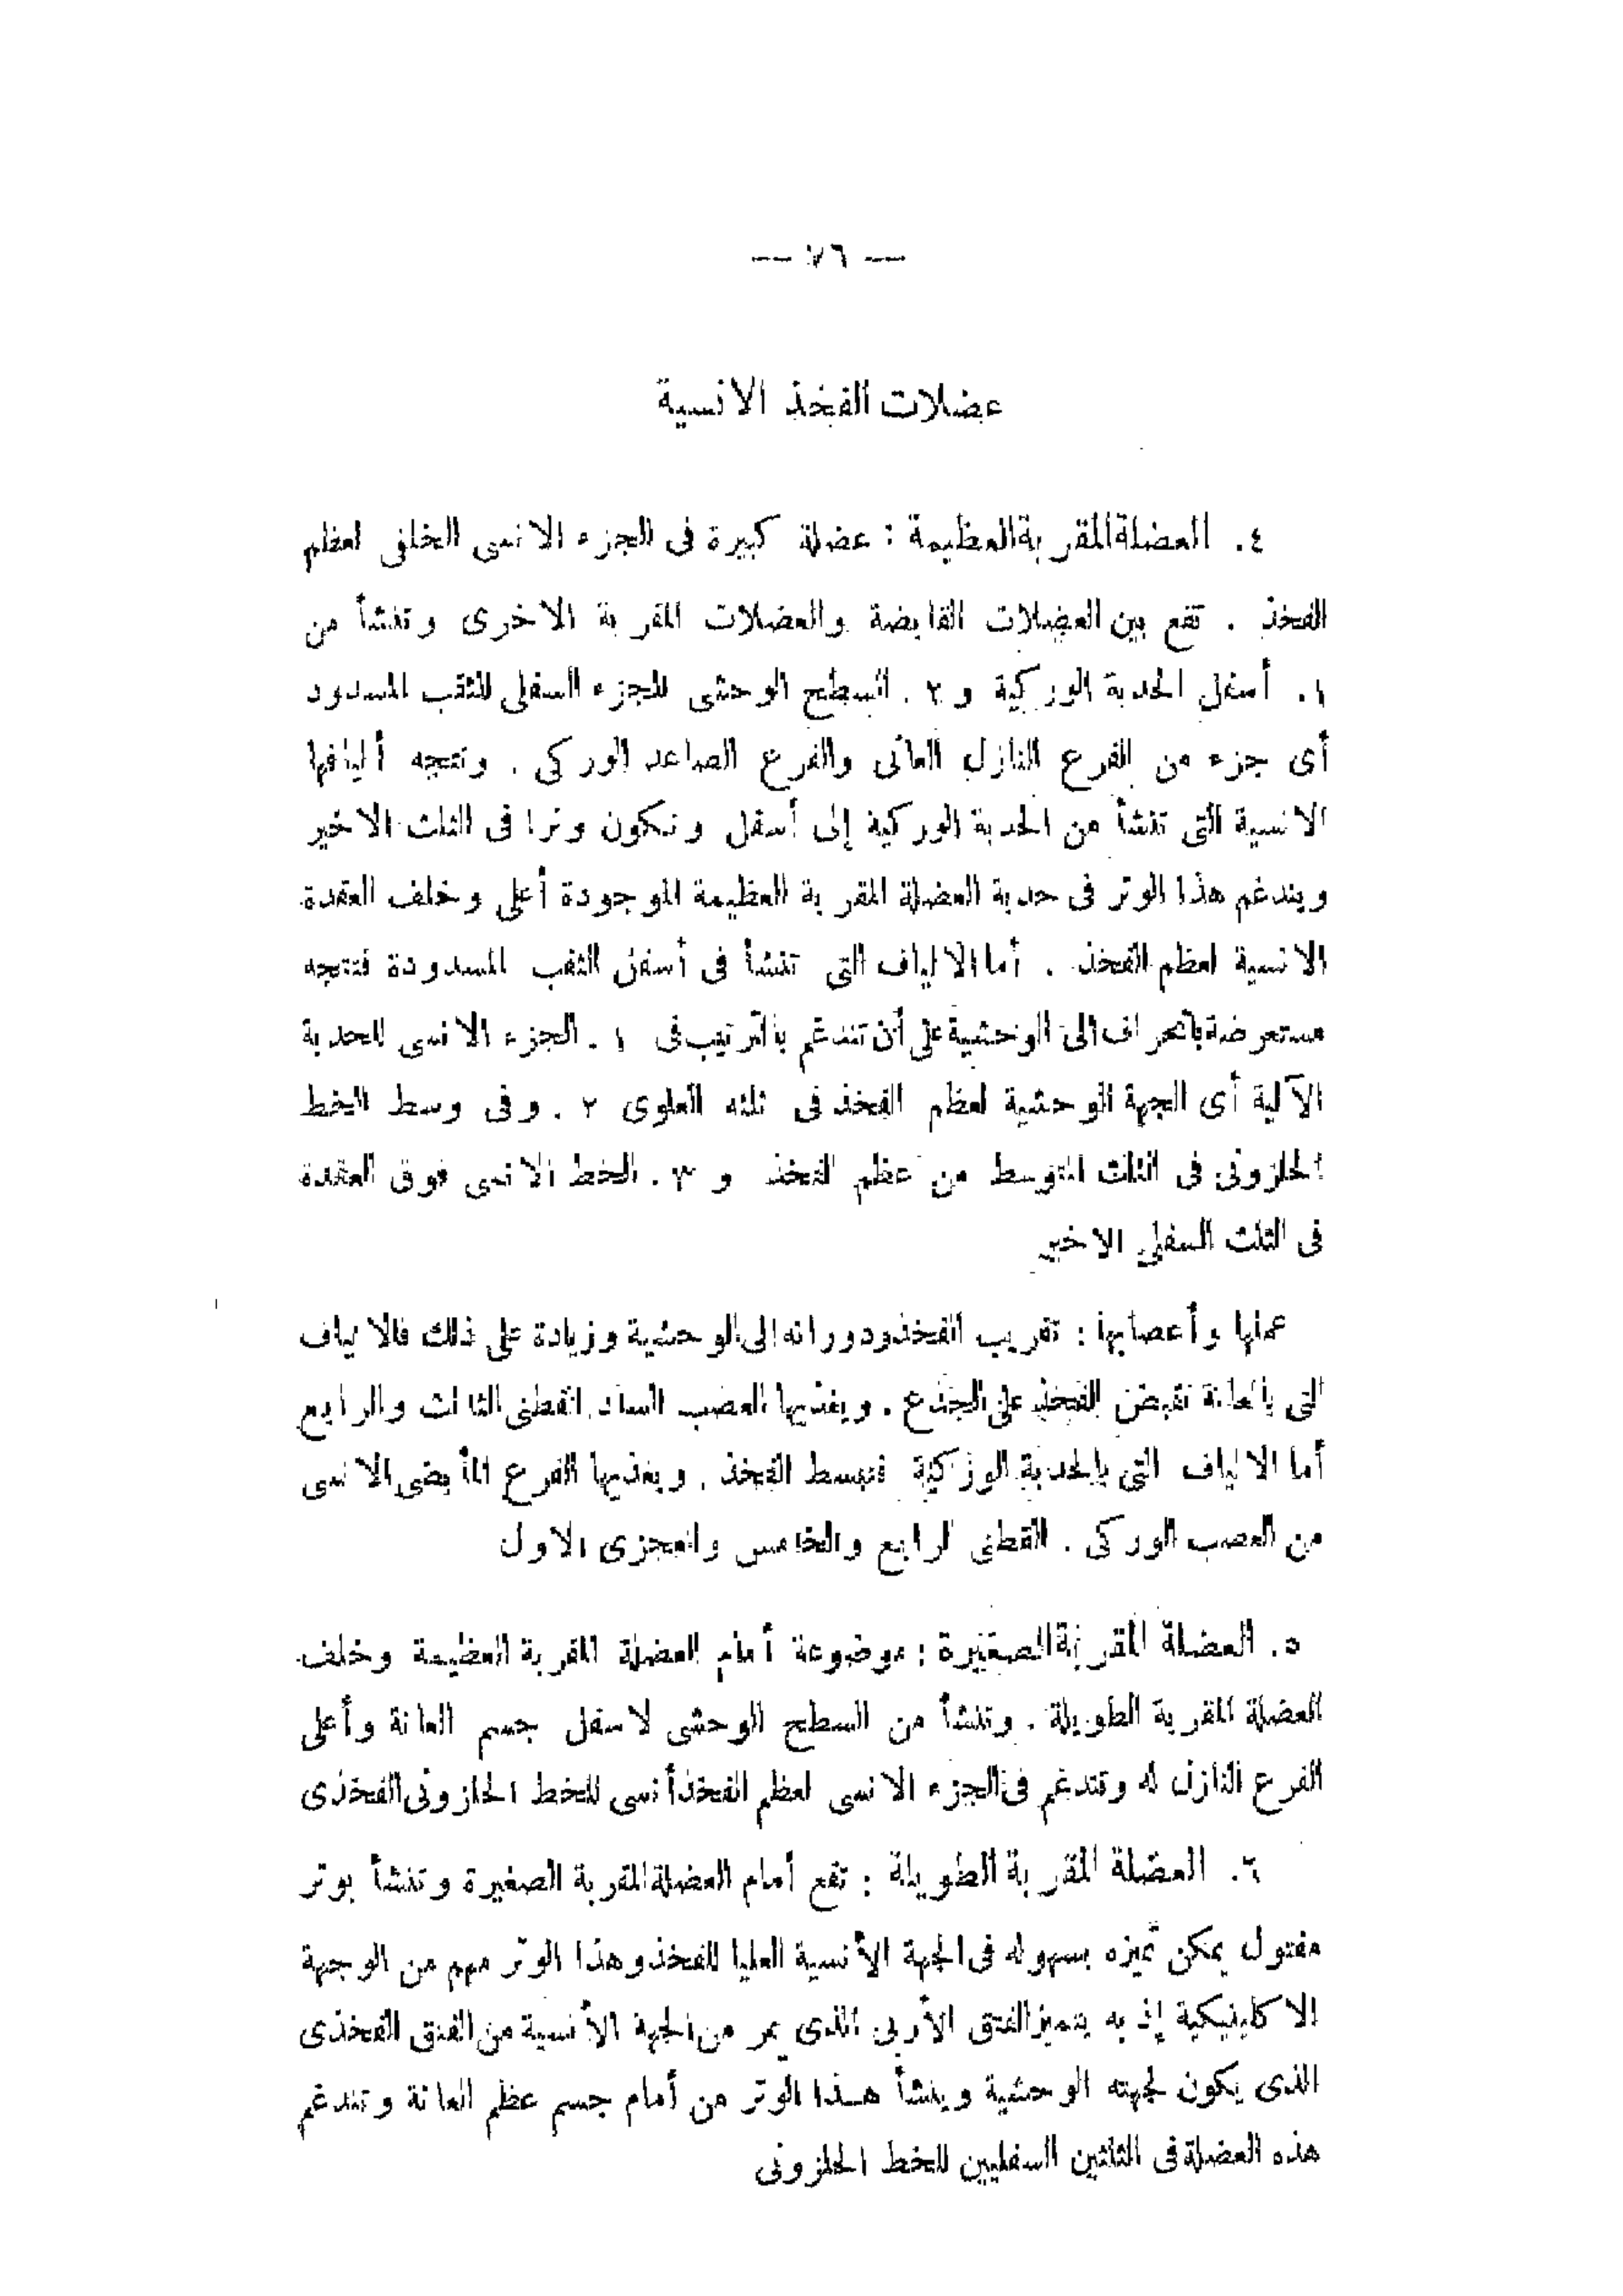 — ٧٦ —
عضلات الفخذ الانسية
٤. العضلة المقربة العظيمة : عضلة كبيرة فى الجزء الانسى الخلفى لعظم
الفخذ . تقع بين العضلات القابضة والعضلات المقربة الاخرى وتنشأ من
١. أسفل الحدبة الوركية و ٢. السطح الوحشى للجزء السفلى للثقب المسدود
أى جزء من الفرع النازل العانى والفرع الصاعد الوركى . وتتجه أليافها
الانسية التى تنشأ من الحدبة الوركية إلى أسفل وتكون وترا فى الثلث الاخير
ويندغم هذا الوتر فى حدبة العضلة المقربة العظيمة الموجودة أعلى وخلف العقدة
الانسية لعظم الفخذ . أما الالياف التى تنشأ فى أسفل الثقب المسدودة فتتجه
مستعرضة بانحراف الى الوحشية على أن تندغم بالترتيب فى ١. الجزء الانسى للحدبة
الآلية أى الجهة الوحشية لعظم الفخذ فى ثلثه العلوى ٢. وفى وسط الخط
الحلزونى فى الثلث المتوسط من عظم الفخذ و ٣. الخط الانسى فوق العقدة
فى الثلث السفلى الاخير
عملها وأعصابها : تقريب الفخذ ودورانه الى الوحشية وزيادة على ذلك فالالياف
التى بالعانة تقبض الفخذ على الجذع . ويغذيها العصب الساد القطنى الثالث والرابع
أما الالياف التى بالحدبة الوركية فتبسط الفخذ . ويغذيها الفرع المأبضى الانسى
من العصب الوركى . القطنى الرابع والخامس والعجزى الاول
٥. العضلة المقربة الصغيرة : موضوعة أمام العضلة المقربة العظيمة وخلف
العضلة المقربة الطويلة . وتنشأ من السطح الوحشى لاسفل جسم العانة وأعلى
الفرع النازل له وتندغم فى الجزء الانسى لعظم الفخذ أنسى للخط الحلزونى الفخذى
٦. العضلة المقربة الطويلة : تقع أمام العضلة المقربة الصغيرة وتنشأ بوتر
مفتول يمكن تميزه بسهوله فى الجهة الأنسية العليا للفخذ وهذا الوتر مهم من الوجهة
الاكلينيكية إذ به يتميز الفتق الأربى الذى يمر من الجهة الأنسية من الفتق الفخذى
الذى يكون لجهته الوحشية وينشأ هـذا الوتر من أمام جسم عظم العانة وتندغم
هذه العضلة فى الثلثين السفليين للخط الحلزونى